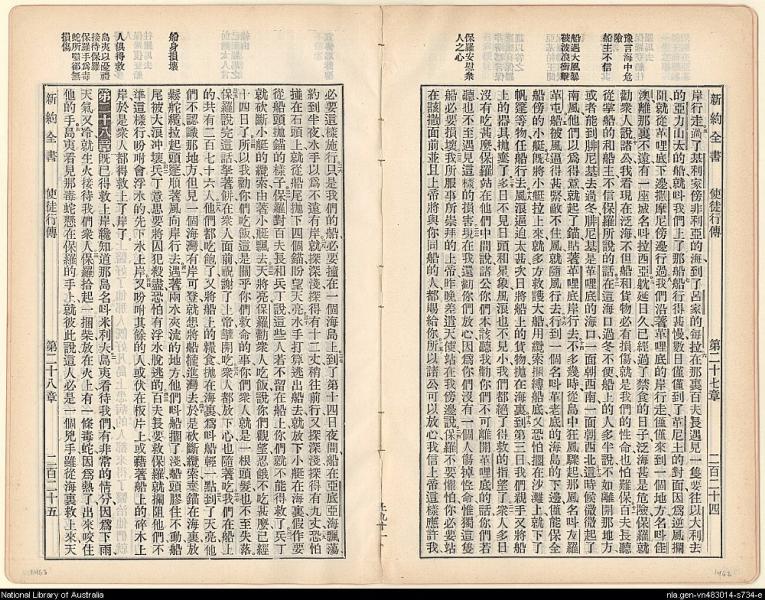 豫言海中危
險
船主不信
船遇大風暴
被波浪衝擊
保羅安慰衆
人之心
新約全書 使徒行傳 第二十七章 二百二十四
岸行走過了基利家傍非利亞的海到了呂家的每拉在那裏百夫長遇見一隻要往以大利去
的亞力山太的船就叫我們上了那船船行得甚慢數日僅僅到了革尼土的對面因爲逆風攔
阻就從革哩底下邊攏摩尼傍邊行過我們沿著革哩底的岸行走僅僅來到一個地方名叫佳
澳離那裏不遠有一座城名叫拉西亞就延日久已經過了禁食的日子泛海甚是危險保羅就
勸衆人說諸公我看現在泛海不但船和貨物必有損傷就是我們的性命也怕難保百夫長聽
從掌船的和船主不信保羅所說的話在這海口過冬不便船上的人多半說不如離開那地方
或者能到腓尼基去過冬腓尼基是革哩底的海口一面朝西南一面朝西北這時候微微起了
南風他們以爲得意就起了錨貼著革哩底岸行去不多幾時從島中狂風驟起那風名叫友羅
革屯船被風逼得甚緊敵不住風就隨風行去行到一個名叫革老底的海島的下邊僅能保全
船傍的小艇既將小艇拉上來就多方救護大船用纜索捆縛船底又恐怕擱在沙灘上就下了
帆篷等物任船行去風浪逼迫太甚次日將船上的貨物拋在海裏到第三日我們親手又將船
上的器具拋棄了多日不見日頭和星象風浪也不見小我們都絕了得救的指望了衆人多日
沒有吃甚麼保羅站在他們中間說諸公你們本該聽我勸你們不可離開革哩底的話你們若
聽也不至遇見這樣的損害現在我還勸你們放心因爲你們沒有一個人傷損性命惟獨這隻
船必要損壞我所服事所敬拜的上帝昨晚差遣天使站在我傍邊說保羅不要懼怕你必要站
在該撒面前並且上帝將與你同船的人都賜給你所以諸公可以放心我信上帝這樣應許我
船身損壞
人俱得救
島夷以優禮
接待保羅
保羅手爲毒
蛇所噬卻無
損傷
新約全書 使徒行傳 第二十八章 二百二十五
必要這樣施行只是我們的船必要撞在一個海島上到了第十四日夜間船在亞底亞海飄蕩
約到半夜水手以爲不遠有岸就探深淺探得有十二丈稍往前行又探深淺探得有九丈恐怕
撞在石頭上就從船尾拋下四個錨盼望天亮水手打算逃出船去就放下小艇在海裏假作要
從船頭拋錨的樣子保羅對百夫長和兵丁說這些人若不留在船上你們就不能得救了兵丁
就砍斷小艇的纜索由著小艇飄去天將亮保羅勸衆人吃飯說你們觀望忍餓不吃甚麼已經
十四日了所以我勸你們吃飯這是關乎你們救命的事你們衆人就是一根頭髮也不至失落
保羅說完這話拏著餅在衆人面前祝謝了上帝擘開吃衆人都放下心也隨著吃我們在船上
的共有二百七十六人個個都吃飽了又將船上的糧食拋在海裏爲叫船輕一點到了天亮他
們不認識那地方但見一個海灣有岸可登就想將船攏進灣去於是砍斷纜索棄錨在海裏放
鬆舵纜拉起頭篷順著風向岸行去遇著兩水夾流的地方他們叫船擱了淺船頭膠住不動船
尾被大浪沖壞兵丁意思要將囚犯殺盡恐怕有浮水脫逃的百夫長要救保羅就攔阻他們不
準這樣行吩咐會浮水的先下水上岸又吩咐其餘的人或伏在板片上或藉著船上的碎木上
岸於是衆人都得救上了岸了
第二十八章既已得救上岸纔知道那島名叫米利大島夷看待我們有非常的情分因爲下雨
天氣又冷就生火接待我們衆人保羅拾起一捆柴放在火上有一條毒蛇因爲熱了出來咬住
他的手島夷看見那毒蛇懸在保羅的手上就彼此說這人必是一個兇手雖從海裏救上來天
1463
1462
National Library of Australia
nla.gen-vn483014-s734-e